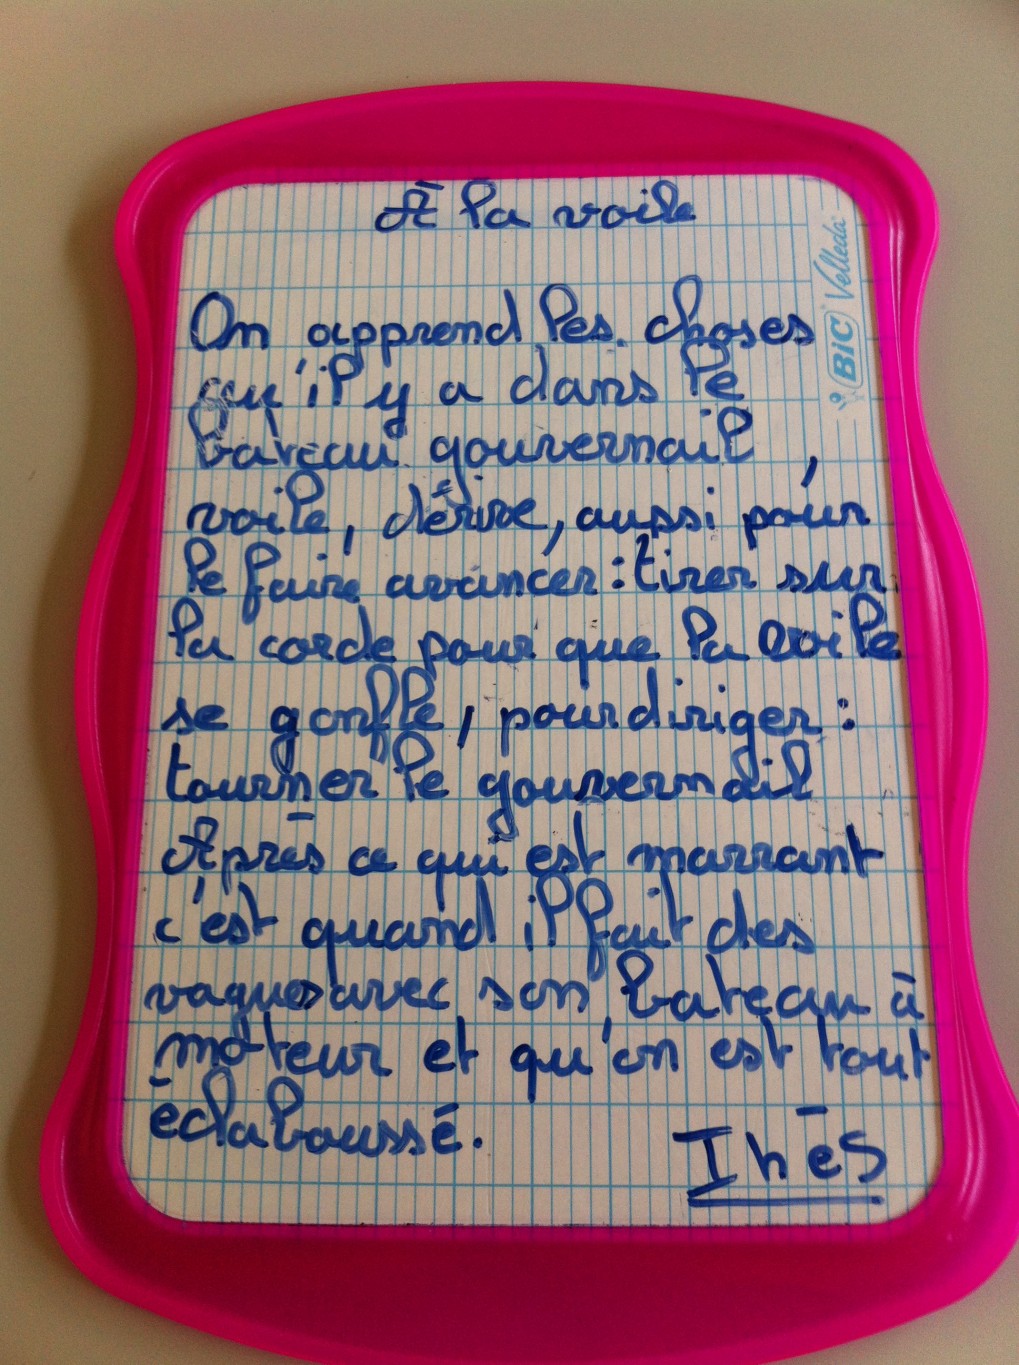 À la voile
BIC Velleda
On apprend les choses
qu'il y a dans le
bateau gouvernail,
voile, dérive, aussi pour
le faire avancer : tirer sur
la corde pour que la voile
se gonfle, pour diriger :
tourner le gouvernail
Après ce qui est marrant
c'est quand il fait des
vagues avec son bateau à
moteur et qu'on est tout
éclaboussé.
Inès